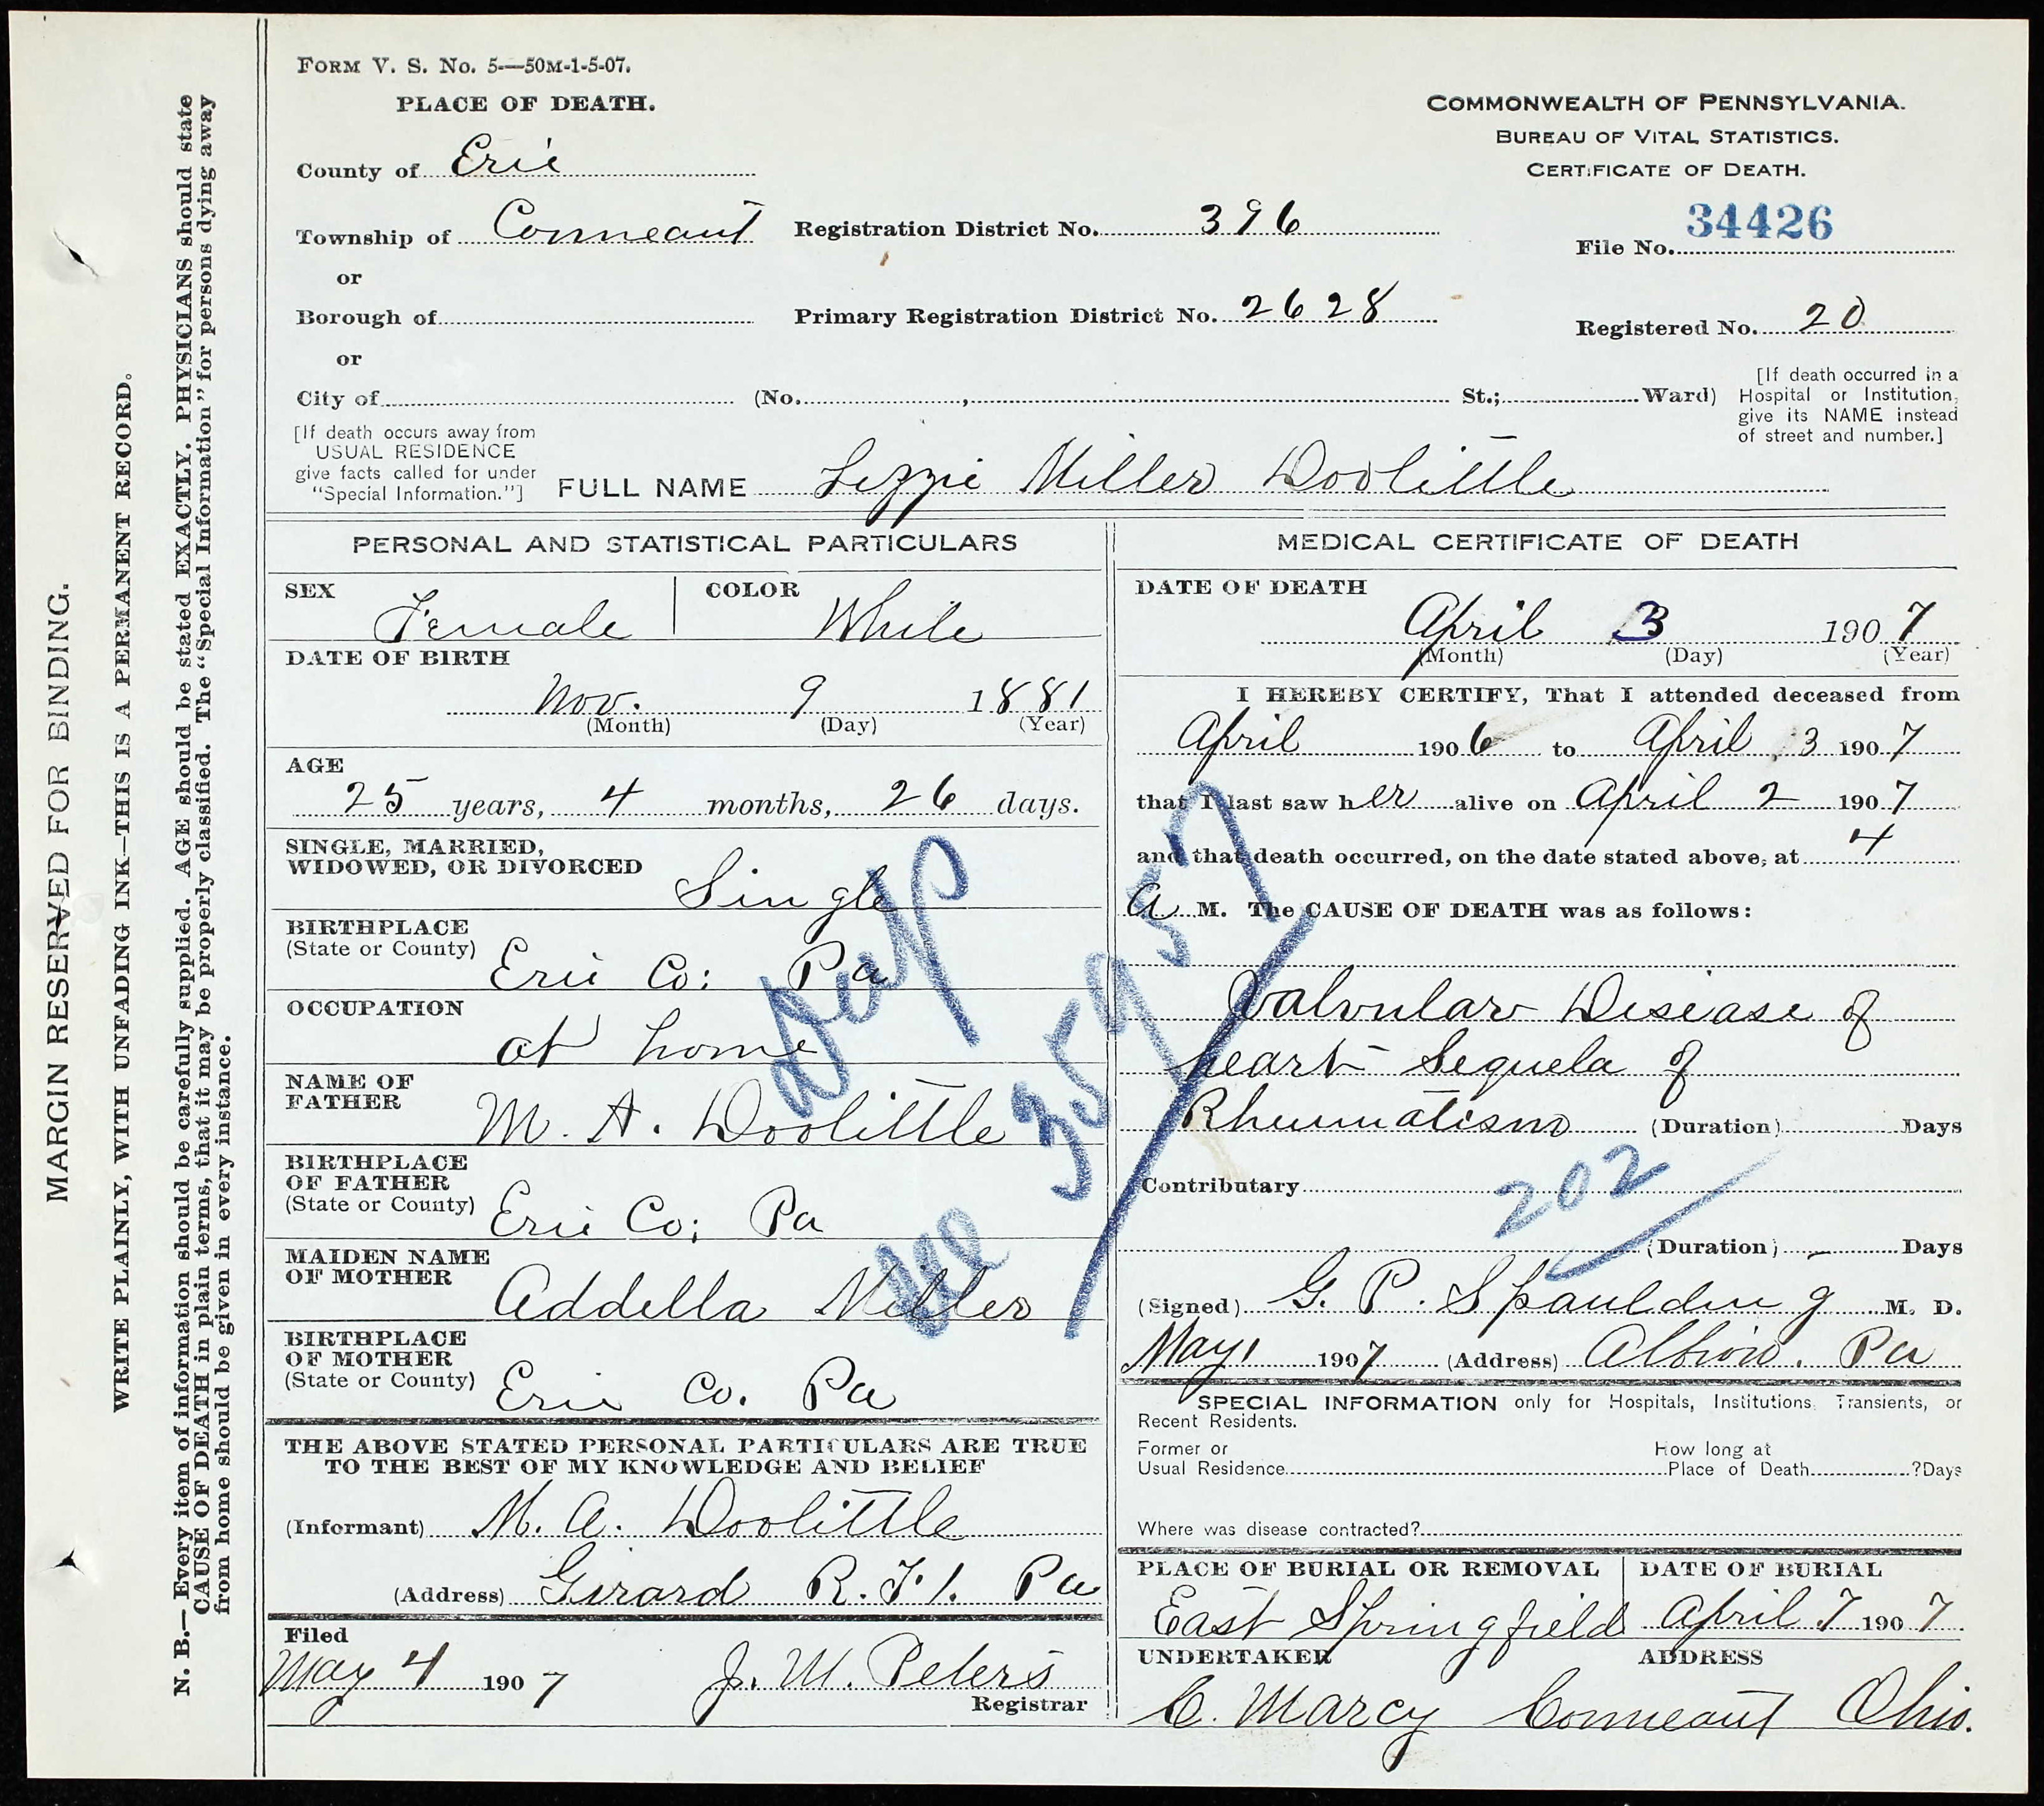 FORM V. S. No. 5—50M-1-5-07.
PLACE OF DEATH.
COMMONWEALTH OF PENNSYLVANIA.
BUREAU OF VITAL STATISTICS.
CERTIFICATE OF DEATH.
County of Erie
Township of Conneaut
Registration District No. 396
File No. 34426
or
Borough of
Primary Registration District No. 2628
Registered No. 20
or
City of (No. , St.; Ward)
[If death occurred in a
Hospital or Institution,
give its NAME instead
of street and number.]
[If death occurs away from
USUAL RESIDENCE
give facts called for under
"Special Information."]
FULL NAME Lizzie Miller Doolittle
PERSONAL AND STATISTICAL PARTICULARS
SEX Female
COLOR White
DATE OF BIRTH
Nov. 9 1881
(Month) (Day) (Year)
AGE
25 years, 4 months, 26 days.
SINGLE, MARRIED,
WIDOWED, OR DIVORCED
Single
BIRTHPLACE
(State or County)
Erie Co: Pa
OCCUPATION
at home
NAME OF
FATHER
M. A. Doolittle
BIRTHPLACE
OF FATHER
(State or County)
Erie Co; Pa
MAIDEN NAME
OF MOTHER
Addella Miller
BIRTHPLACE
OF MOTHER
(State or County)
Erie Co. Pa
THE ABOVE STATED PERSONAL PARTICULARS ARE TRUE
TO THE BEST OF MY KNOWLEDGE AND BELIEF
(Informant) M. A. Doolittle
(Address) Girard R. F. 1. Pa
Filed
May 4 1907 J. M. Peters
Registrar
MEDICAL CERTIFICATE OF DEATH
DATE OF DEATH
April 3 1907
(Month) (Day) (Year)
I HEREBY CERTIFY, That I attended deceased from
April 1906 to April 3 1907
that I last saw her alive on April 2 1907
and that death occurred, on the date stated above, at 4
a M. The CAUSE OF DEATH was as follows:
Valvular Disease of
heart Sequela of
Rheumatism (Duration) Days
Contributary
(Duration) Days
(Signed) G. P. Spaulding M. D.
May 1 1907 (Address) Albion. Pa
SPECIAL INFORMATION only for Hospitals, Institutions, Transients, or
Recent Residents.
Former or
Usual Residence
How long at
Place of Death ?Days
Where was disease contracted?
PLACE OF BURIAL OR REMOVAL
East Springfield
DATE OF BURIAL
April 7 1907
UNDERTAKER
ADDRESS
C. Marcy Conneaut Ohio.
Dup
See 35957
202
MARGIN RESERVED FOR BINDING.
WRITE PLAINLY, WITH UNFADING INK—THIS IS A PERMANENT RECORD.
N. B.—Every item of information should be carefully supplied. AGE should be stated EXACTLY. PHYSICIANS should state
CAUSE OF DEATH in plain terms, that it may be properly classified. The "Special Information" for persons dying away
from home should be given in every instance.